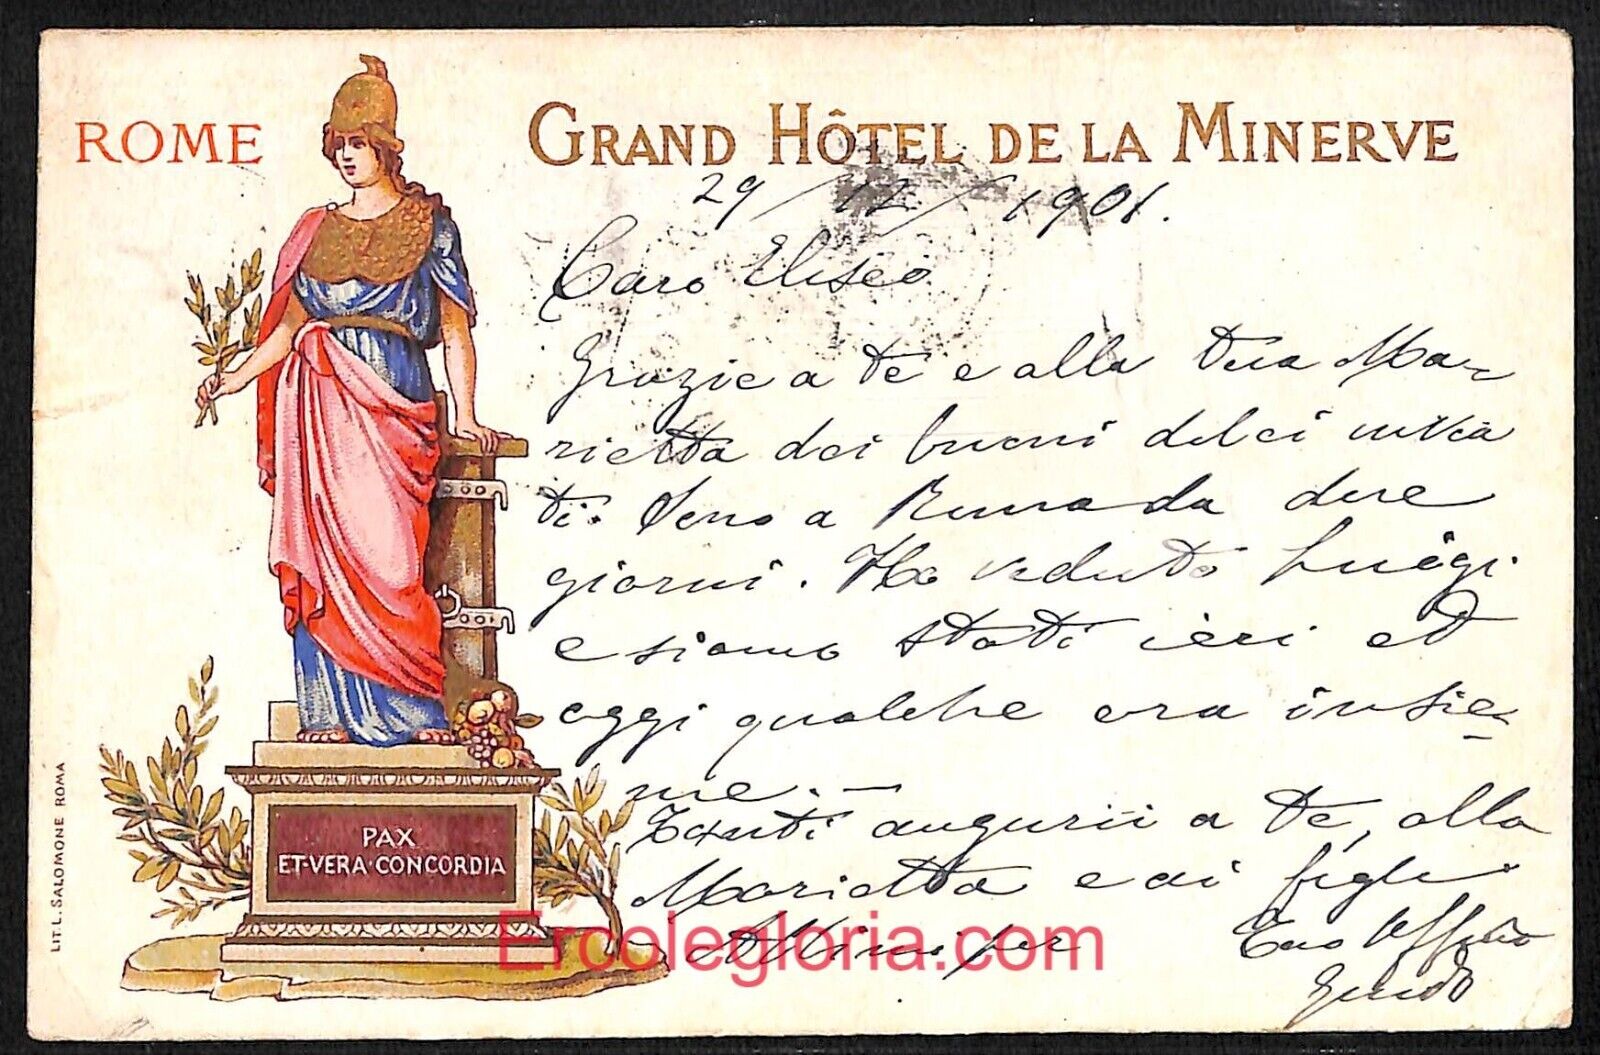 ROME
GRAND HÔTEL DE LA MINERVE
29/12/1901.
Caro Eliseo
Grazie a te e alla tua Ma-
rietta dei buoni dolci invia
ti. Sono a Roma da due
giorni. Ho veduto Luigi
e siamo stati ieri ed
oggi qualche ora insie-
me. —
Tanti augurii a te, alla
Marietta e ai figli
Tuo Aff
Guido
PAX
ET·VERA·CONCORDIA
LIT. L. SALOMONE ROMA
Ercolegloria.com